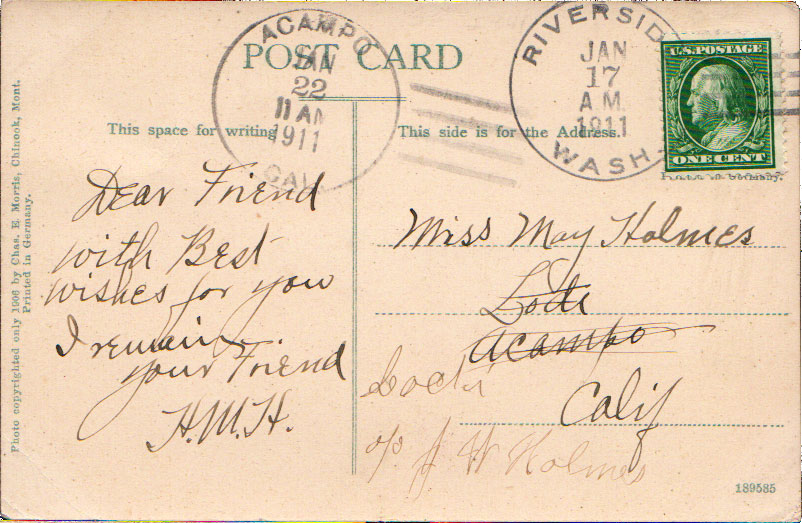 POST CARD
ACAMPO
JAN
22
11 AM
1911
CAL.
RIVERSIDE
JAN
17
A.M.
1911
WASH.
U.S. POSTAGE
ONE CENT
This space for writing
This side is for the Address.
Printed in Germany.
Photo copyrighted only 1906 by Chas. E. Morris, Chinook, Mont.
Printed in Germany.
Dear Friend
with Best
wishes for you
I remain
your Friend
H.M.H.
Miss May Holmes
Lodi
Acampo
Calif
c/o J W Holmes
189585